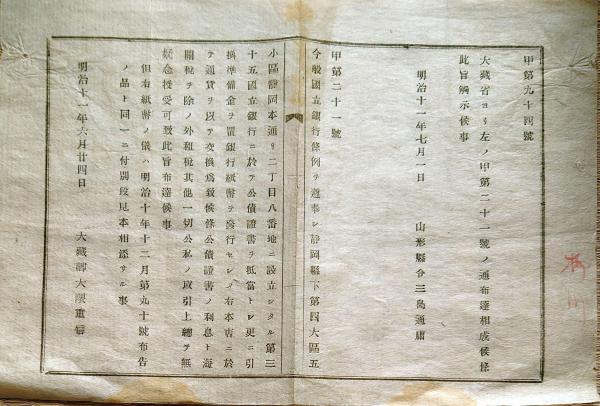 甲第九十四號
大藏省ヨリ左ノ甲第二十一號ノ通布達相成候條
此旨觸示候事
明治十一年七月一日
山形縣令三島通庸
甲第二十一號
今般國立銀行條例ヲ遵奉シ靜岡縣下第四大區五
小區靜岡本通リ二丁目八番地ニ設立シタル第三
十五國立銀行ニ於テ公債證書ヲ抵當トシ更ニ引
換準備金ヲ置銀行紙幣ヲ發行セシメ右本店ニ於
テ通貨ヲ以テ交換爲致候條公債證書ノ利息ト海
關稅ヲ除ノ外租稅其他一切公私ノ取引上總テ無
疑念授受可致此旨布達候事
但右紙幣ノ儀ハ明治十年十二月第九十號布告
ノ品ト同一ニ付別段見本相添サル事
明治十一年六月廿四日
大藏卿大隈重信